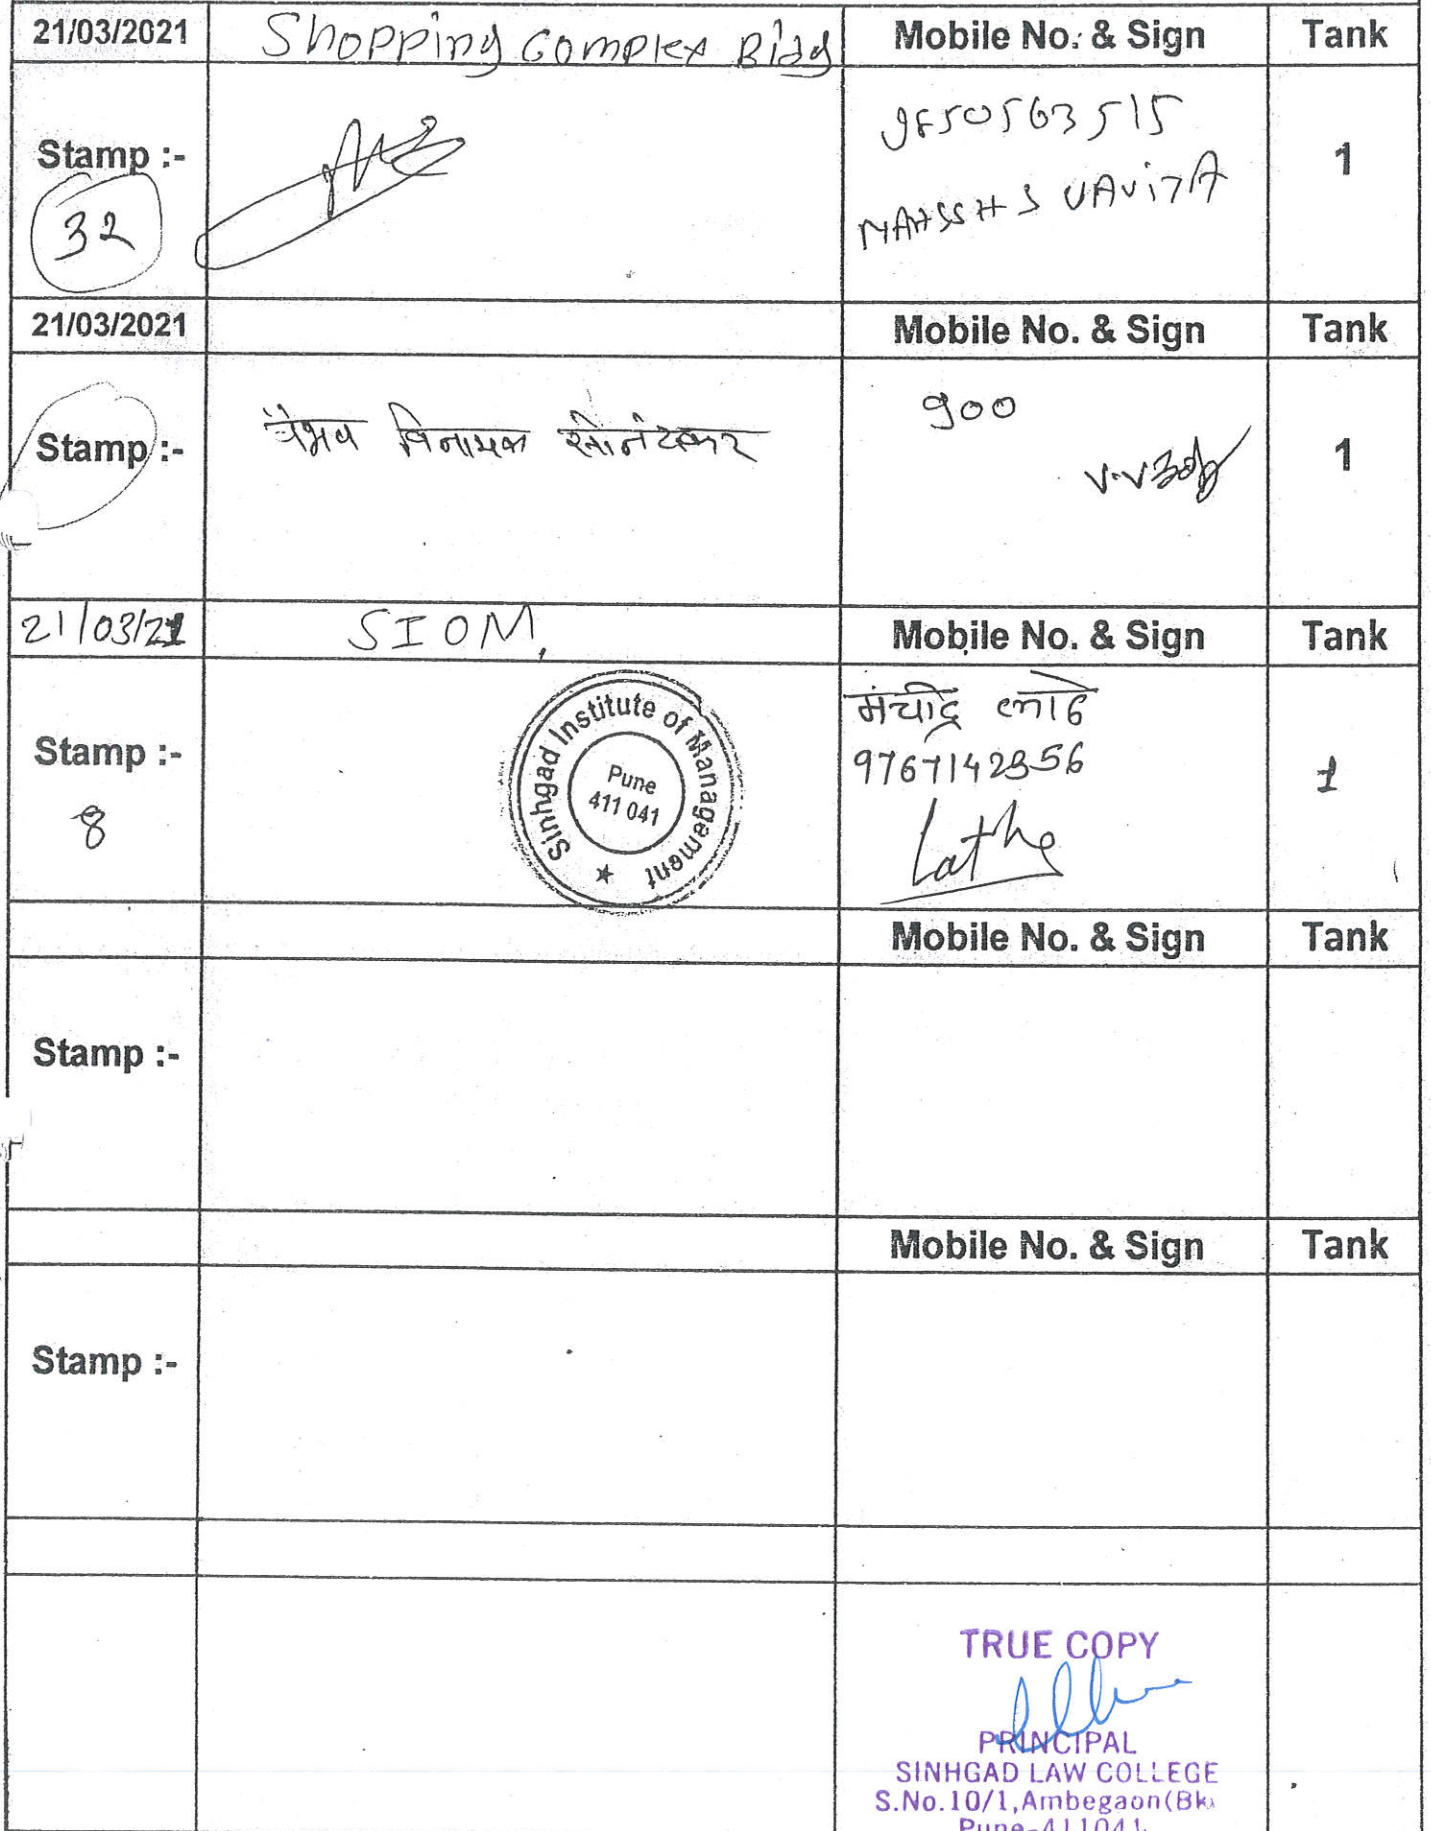 21/03/2021 Shopping Complex Bldg Mobile No. & Sign Tank
Stamp :- 9850563515 1
32
21/03/2021 Mobile No. & Sign Tank
Stamp :- वैभव विनायक 900 1
21/03/21 SIOM, Mobile No. & Sign Tank
Stamp :- Sinhgad Institute of Management 1
Pune
411 041
8
Lathe
Mobile No. & Sign Tank
Stamp :-
Mobile No. & Sign Tank
Stamp :-
TRUE COPY
PRINCIPAL
SINHGAD LAW COLLEGE
S.No.10/1,Ambegaon(Bk)
Pune-411041